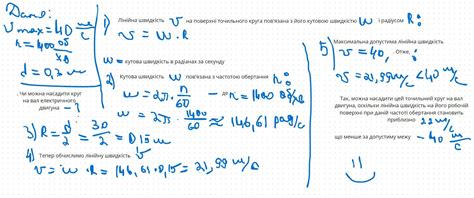 Дано:
υ max = 40 м/с
n = 1400 об/хв
d = 0,3 м
Чи можна насадити круг на вал електричного двигуна - ?
1) Лінійна швидкість υ на поверхні точильного круга пов'язана з його кутовою швидкістю w і радіусом R:
υ = w · R
w = кутова швидкість в радіанах за секунду
2) Кутова швидкість w пов'язана з частотою обертання n:
w = 2π · n/60 → n = 1400 об/хв
w = 2π · 1400/60 ≈ 146,61 рад/с
3) R = d/2 = 30/2 = 0,15 м
4) Тепер обчислимо лінійну швидкість υ
υ = w · R = 146,61 · 0,15 = 21,99 м/с
5) Максимальна допустима лінійна швидкість
υ = 40, Отже,
υ = 21,99 м/с < 40 м/с
Так, можна насадити цей точильний круг на вал
двигуна, оскільки лінійна швидкість на його робочій
поверхні при даній частоті обертання становить
приблизно 22 м/с
що менше за допустиму межу - 40 м/с